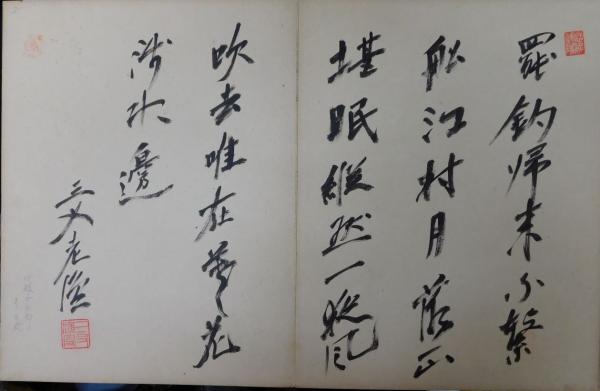 罷釣帰来不繋
船江村月落正
堪眠縦然一夜風
吹去唯在芦花
浅水邊
三 老